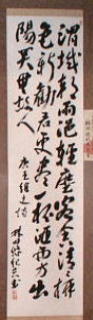 渭城朝雨浥輕塵客舍青々柳
色新勸君更盡一杯酒西出
陽關無故人
唐王維之詩
林田悠紀夫書